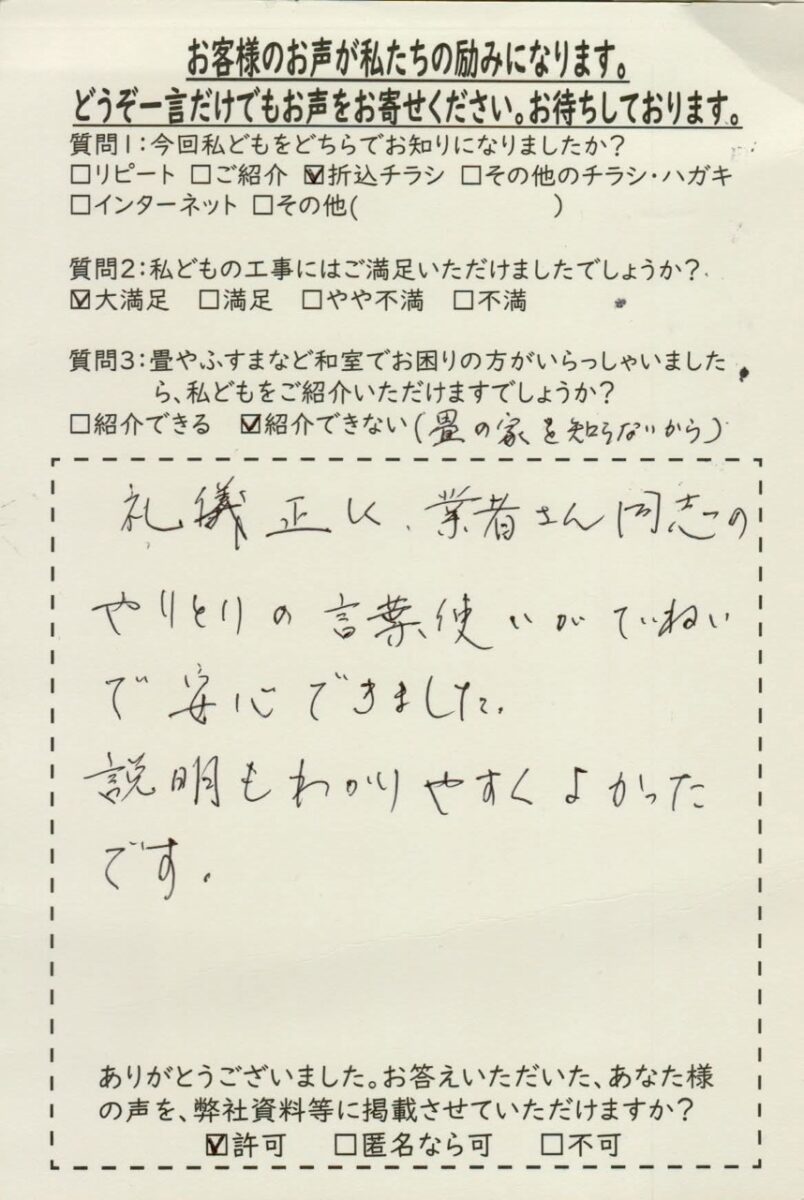 お客様のお声が私たちの励みになります。
どうぞ一言だけでもお声をお寄せください。お待ちしております。
質問1:今回私どもをどちらでお知りになりましたか?
□リピート □ご紹介 ☑折込チラシ □その他のチラシ・ハガキ
□インターネット □その他( )
質問2:私どもの工事にはご満足いただけましたでしょうか?
☑大満足 □満足 □やや不満 □不満
質問3:畳やふすまなど和室でお困りの方がいらっしゃいました
ら、私どもをご紹介いただけますでしょうか?
□紹介できる ☑紹介できない(畳の家を知らないから)
礼儀正しく、業者さん同志の
やりとりの言葉使いがていねい
で安心できました。
説明もわかりやすくよかった
です。
ありがとうございました。お答えいただいた、あなた様
の声を、弊社資料等に掲載させていただけますか?
☑許可 □匿名なら可 □不可